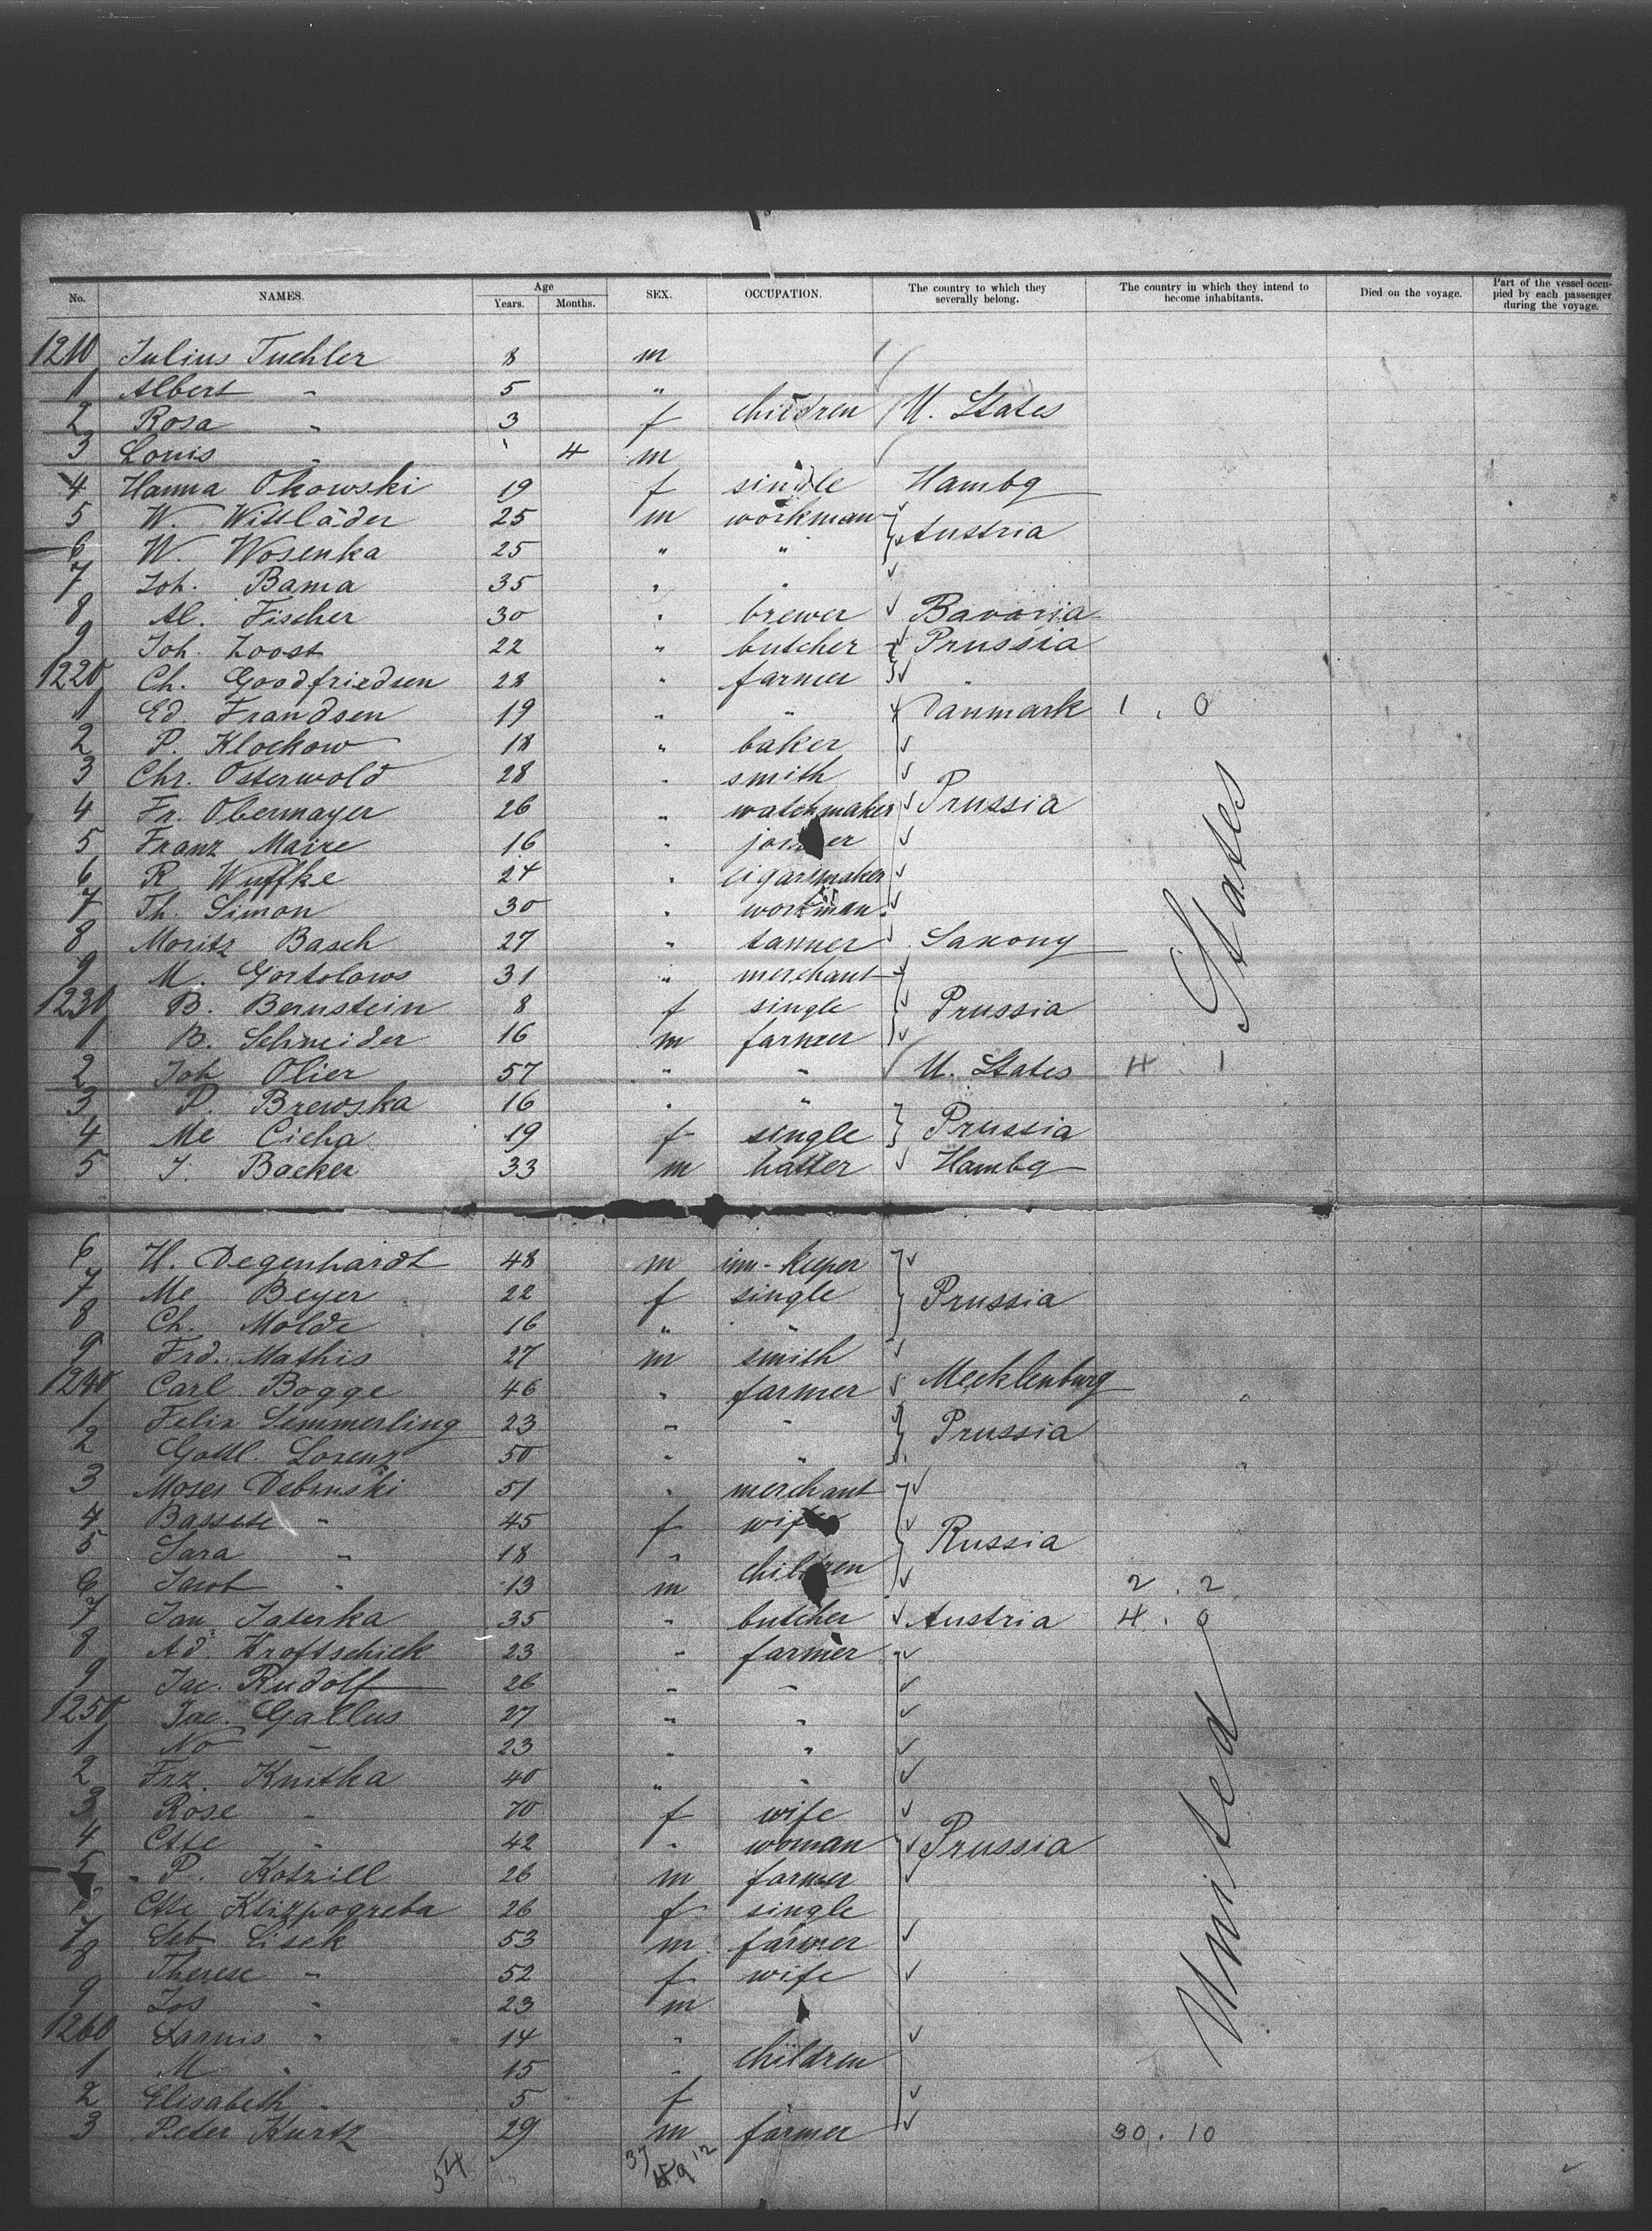 No. NAMES. Age Years. Months. SEX. OCCUPATION. The country to which they severally belong. The country in which they intend to become inhabitants. Died on the voyage. Part of the vessel occupied by each passenger during the voyage.
1210 Julius Tuchler 8 m
1 Albert " 5 "
2 Rosa " 3 f children U. States
3 Louis " 4 m
4 Hanna Okowski 19 f single Hambg
5 W. Wittläder 25 m workman
6 W. Wosenka 25 " " Austria
7 Joh. Bama 35 " "
8 Al. Fischer 30 " brewer Bavaria
9 Joh. Zoost 22 " butcher Prussia
1220 Ch. Goodfriedsen 28 " farmer "
1 Ed. Frandsen 19 " " Danmark 1 . 0
2 P. Klockow 18 " baker
3 Chr. Osterwold 28 " smith
4 Fr. Obermayer 26 " watchmaker Prussia
5 Franz Maire 16 " joiner
6 R. Wuffke 24 " cigarsmaker
7 Th. Simon 30 " workman
8 Moritz Basch 27 " tanner Saxony
9 M. Gortolows 31 " merchant
1230 B. Bernstein 8 f single Prussia
1 B. Schneider 16 m farmer
2 Joh Olier 57 " " U. States 4 . 1
3 P. Brewska 16 " "
4 Me Cicha 19 f single Prussia
5 J. Backer 33 m hatter Hambg
6 H. Degenhardt 48 m inn-keeper
7 Me Beyer 22 f single Prussia
8 Ch. Molde 16 " "
9 Frd. Mathis 27 m smith
1240 Carl Bogge 46 " farmer Mecklenburg
1 Felix Semmerling 23 " " Prussia
2 Gottl. Lorenz 50 " "
3 Moses Debruski 51 " merchant
4 Bassete " 45 f wife
5 Sara " 18 " children Russia
6 Jacob " 13 m 2 . 2
7 Jan Jaterka 35 " butcher Austria 4 . 0
8 Ad. Kroftschick 23 " farmer
9 Jac. Rudolf 26 " "
1250 Jac. Gallus 27 " "
1 No " 23 " "
2 Frz. Knitka 40 " "
3 Rose " 70 f wife
4 Ctte " 42 " woman Prussia
5 P. Kotzill 26 m farmer
6 Ctte Klizpogreba 26 f single
7 Seb Lisek 53 m farmer
8 Therese " 52 f wife
9 Jos " 23 m
1260 " 14 "
1 M " 15 " children
2 Elisabeth " 5 f
3 Peter Kurtz 29 m farmer 30 . 10
United States
54 37 9 12